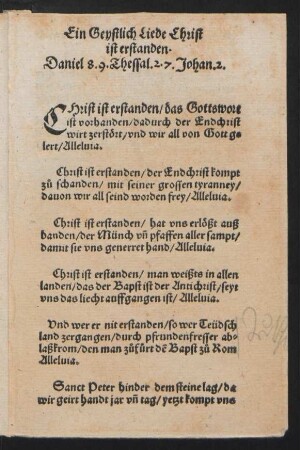 Ein Geystlich Liede Christ
ist erstanden.
Daniel 8.9. Thessal. 2.7. Johan. 2.
CHrist ist erstanden/ das Gottswort
ist vorhanden/ dadurch der Endchrist
wirt zerstört/ vnd wir all von Gott ge
lert/ Alleluia.
Christ ist erstanden/ der Endchrist kompt
zů schanden/ mit seiner grossen tyranney/
dauon wir all seind worden frey/ Alleluia.
Christ ist erstanden/ hat vns erlößt auß
banden/ der Münch vñ pfaffen aller sampt/
damit sie vns generret hand/ Alleluia.
Christ ist erstanden/ man weißts in allen
landen/ das der Bapst ist der Antichrist/ seyt
vns das liecht auffgangen ist/ Alleluia.
Vnd wer er nit erstanden/ so wer Teüdsch
land zergangen/ durch pfrundenfresser ab-
laßkrom/ den man zůfürt dē Bapst zů Rom
Alleluia.
Sanct Peter hinder dem steine lag/ da
wir geirt handt jar vñ tag/ yetzt kompt vns